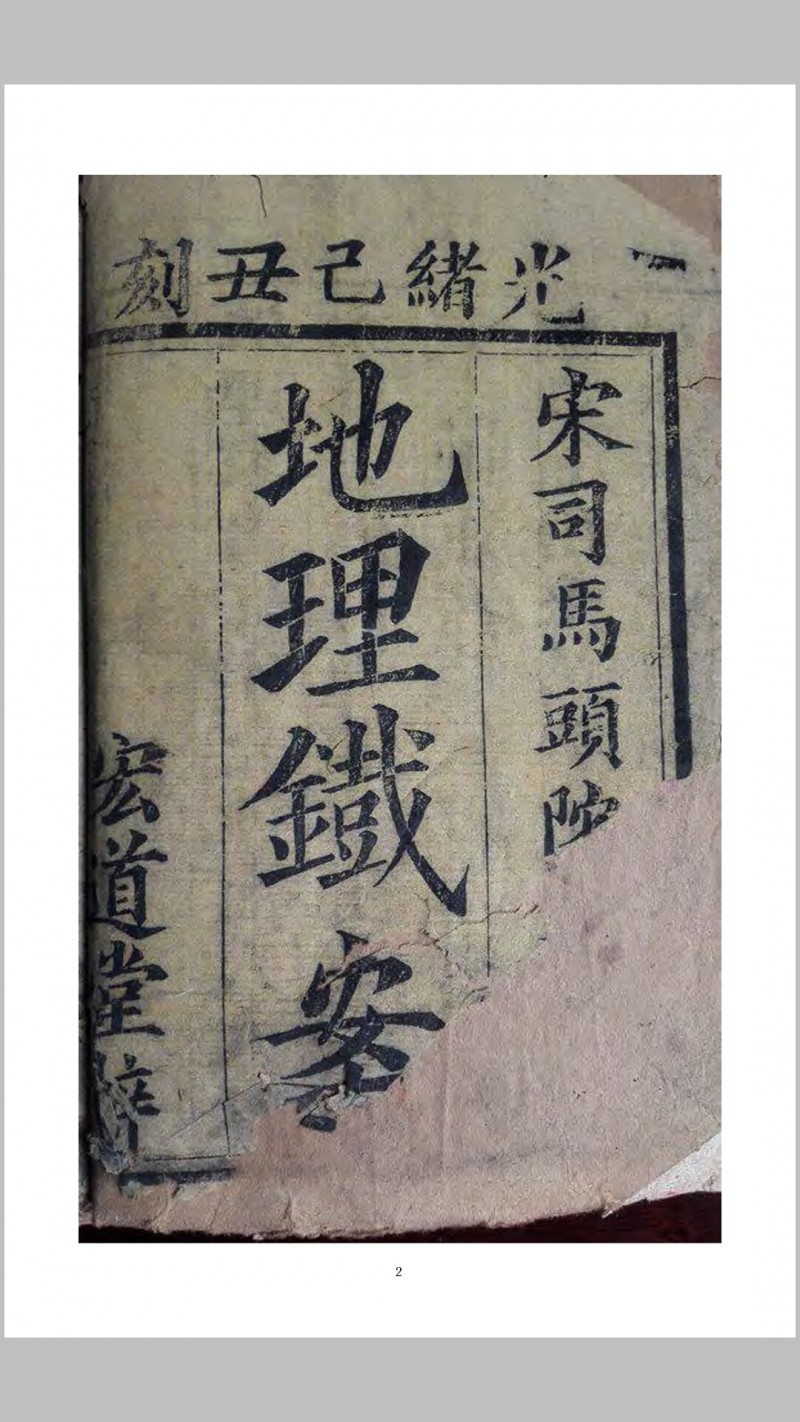 光緒己丑刻
宋司馬頭陀
地理鐵案
宏道堂
2